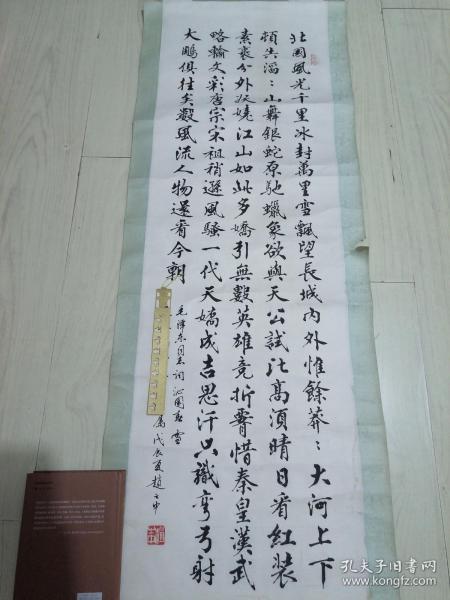 北国风光千里冰封萬里雪飄望長城内外惟餘莽〻大河上下
頓失滔〻山舞銀蛇原馳蠟象欲與天公試比高須晴日看紅装
素裹分外妖嬈江山如此多嬌引無數英雄竞折腰惜秦皇漢武
略輸文彩唐宗宋祖稍遜風騷一代天嬌成吉思汗只識彎弓射
大鵰俱往矣數風流人物還看今朝
毛澤东同志词沁園春雪
戊辰夏趙
孔夫子旧书网